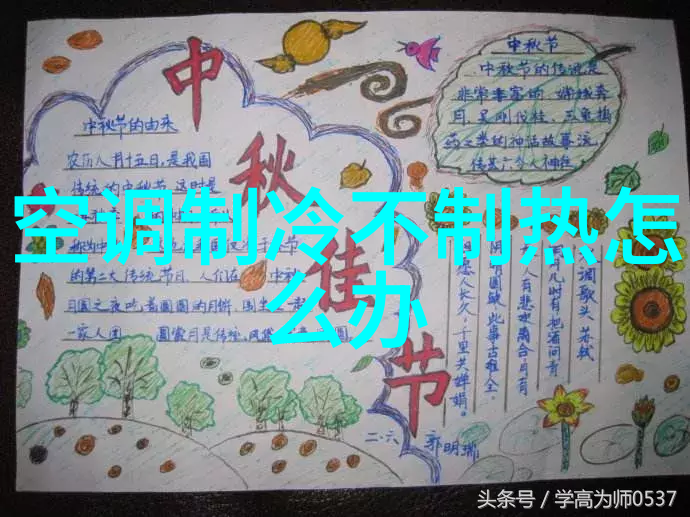 中秋佳节
中秋节的由来
农历八月十五日,是我国
传统的中秋节,这时是
的第二大传统节日,人们在 中秋
月圆之夜吃着圆圆的月饼,围坐
一家人团 圆赏月是传
中秋节
中秋节的传说是
非常丰富的,嫦娥奔
月,吴刚伐桂,玉兔捣
药之类的神话故事流
传甚广
空调制冷不制热怎
么办
水调歌头 苏轼
明月几时有把酒问青
人有悲欢离合月有
阴晴圆缺,此事古难全。
但愿人长久,千里共婵娟。
二.六 郭明瑞
头条号 / 学高为师0537